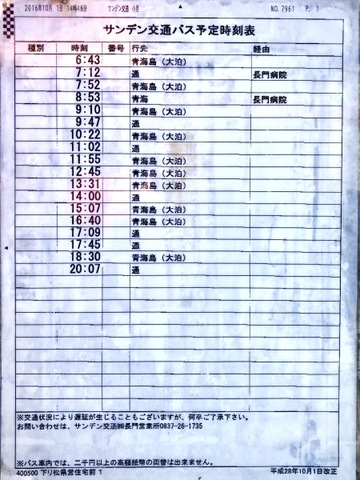 2016年10月 1日 14時46分 サンデン交通 小原 NO.7961 P. 1
サンデン交通バス予定時刻表
種別 時刻 番号 行先 経由
6:43 青海島（大泊）
7:12 通 長門病院
7:52 青海島（大泊）
8:53 青海 長門病院
9:10 青海島（大泊）
9:47 通
10:22 青海島（大泊）
11:02 通
11:55 青海島（大泊）
12:45 青海島（大泊）
13:31 青海島（大泊）
14:00 通
15:07 青海島（大泊）
16:40 青海島（大泊）
17:09 通
17:45 通
18:30 青海島（大泊）
20:07 通
※交通状況により遅延が生じることもございますが、何卒ご了承下さい。
お問い合わせは、サンデン交通㈱長門営業所0837-26-1735
※バス車内では、二千円以上の高額紙幣の両替は出来ません。
400500 下り松県営住宅前 1 平成28年10月1日改正